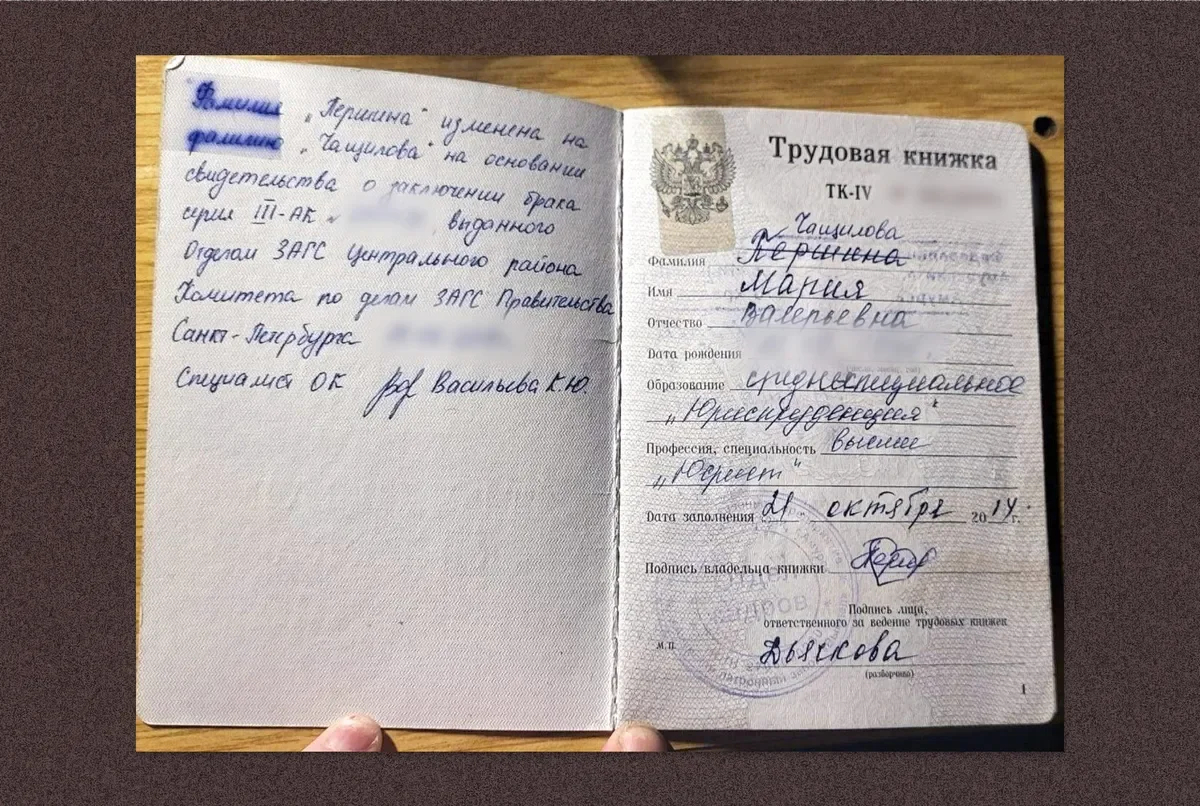 Фамилия „Першина“ изменена на
фамилию „Чащилова“ на основании
свидетельства о заключении брака
серия III-АК выданного
Отделам ЗАГС Центрального района
Комитета по делам ЗАГС Правительства
Санкт-Петербурга
Специалист ОК Васильева К.Ю.
Трудовая книжка
ТК-IV
Чащилова
Фамилия Першина
Имя Мария
Отчество Валерьевна
Дата рождения
Образование среднеспециальное
„Юриспруденция“
Профессия, специальность высшее
„Юрист“
Дата заполнения 21 октября 2014 г.
Подпись владельца книжки
Подпись лица,
ответственного за ведение трудовых книжек
м.п. Дьячкова
(разборчиво)
1